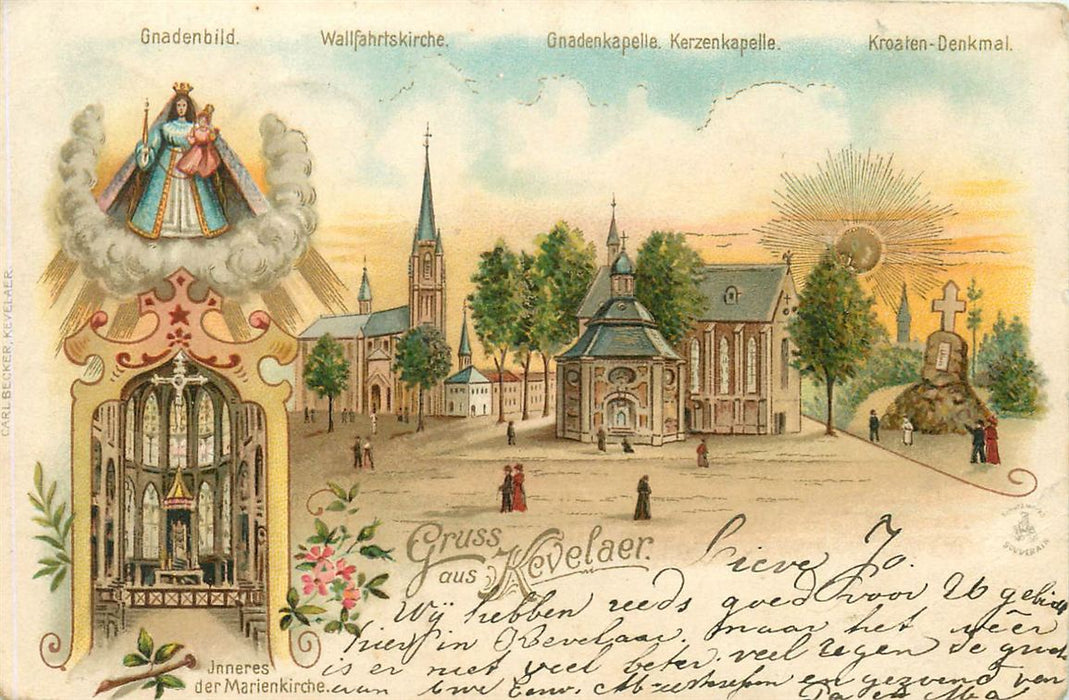 Gnadenbild.
Wallfahrtskirche.
Gnadenkapelle. Kerzenkapelle.
Kroaten-Denkmal.
CARL BECKER, KEVELAER.
Gruss
aus Kevelaer.
Jnneres
der Marienkirche.
SOUVERAIN
Lieve Jo.
Wij hebben reeds goed voor 26
hier in Kevelaar. maar het wēer
is er niet veel beter. veel regen de
aan en gezond van